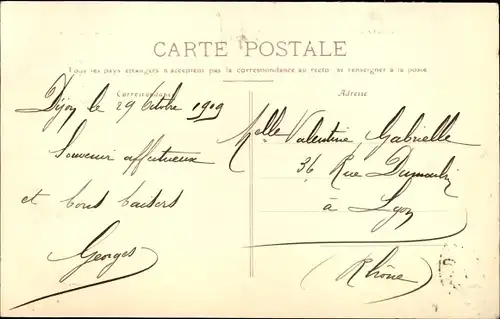 CARTE POSTALE
Tous les pays étrangers n'acceptent pas la correspondance au recto (se renseigner à la poste)
Correspondance
Adresse
Dijon le 29 Octobre 1909
Souvenir affectueux
et bons baisers
Georges
Melle Valentine Gabrielle
36 Rue Dumoulin
à Lyon
(Rhône)